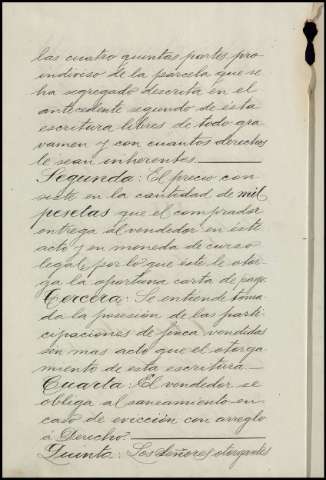 las cuatro quintas partes pro
indiviso de la parcela que se
ha segregado descrita en el
antecedente segundo de esta
escritura libres de todo gra
vamen y con cuantos derechos
le sean inherentes
Segunda: El precio con
siste en la cantidad de mil
pesetas que el comprador
entrega al vendedor en este
acto y en moneda de curso
legal, por lo que este le otor
ga la oportuna carta de pago
Tercera: Se entiende toma
da la posesión de las parti
cipaciones de finca vendidas
sin mas acto que el otorga
miento de esta escritura
Cuarta: El vendedor se
obliga al saneamiento en
caso de evicción con arreglo
á Derecho.
Quinta: Los Señores otorgantes